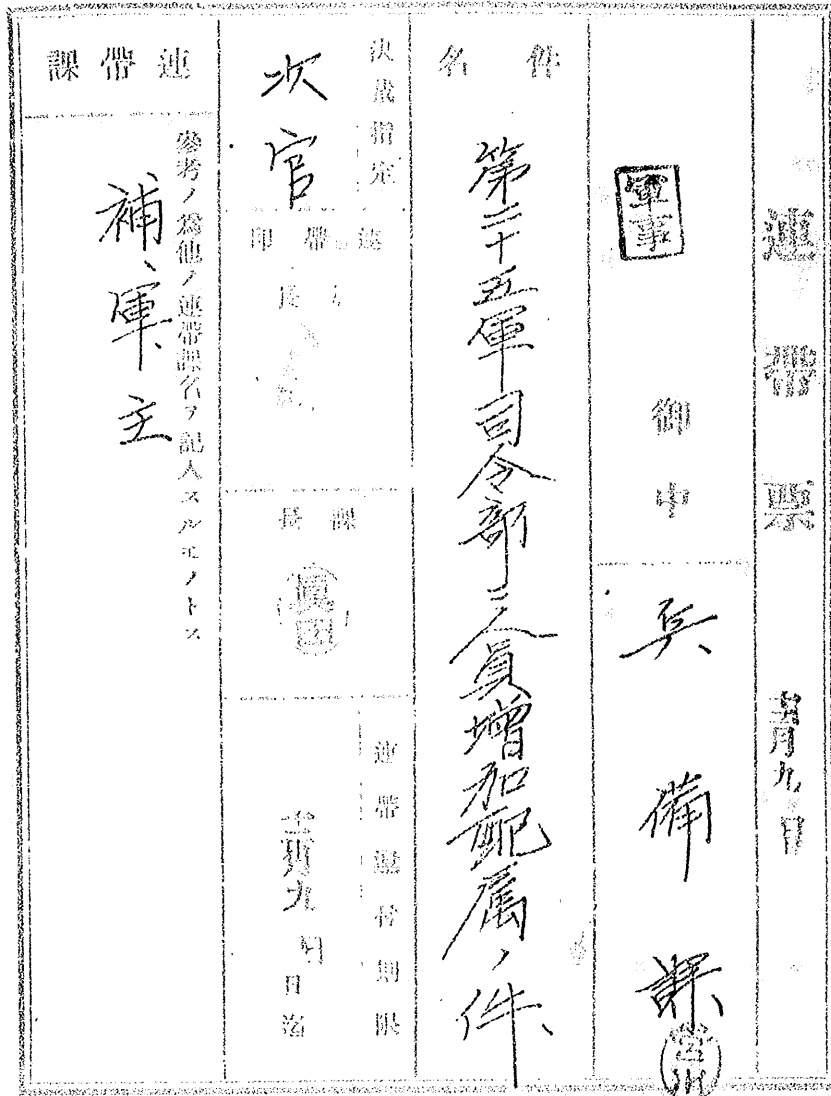 連帶票
十二月九日
軍事
御中
兵備課
宮川
件名
第二十五軍司令部ニ人員增加配属ノ件
決裁指定
次官
連帶印
課長
眞田
連帶還付期限
十二月九日
日迄
連帶課
參考ノ爲他ノ連帶課名ヲ記入スルモノトス
補、軍、主